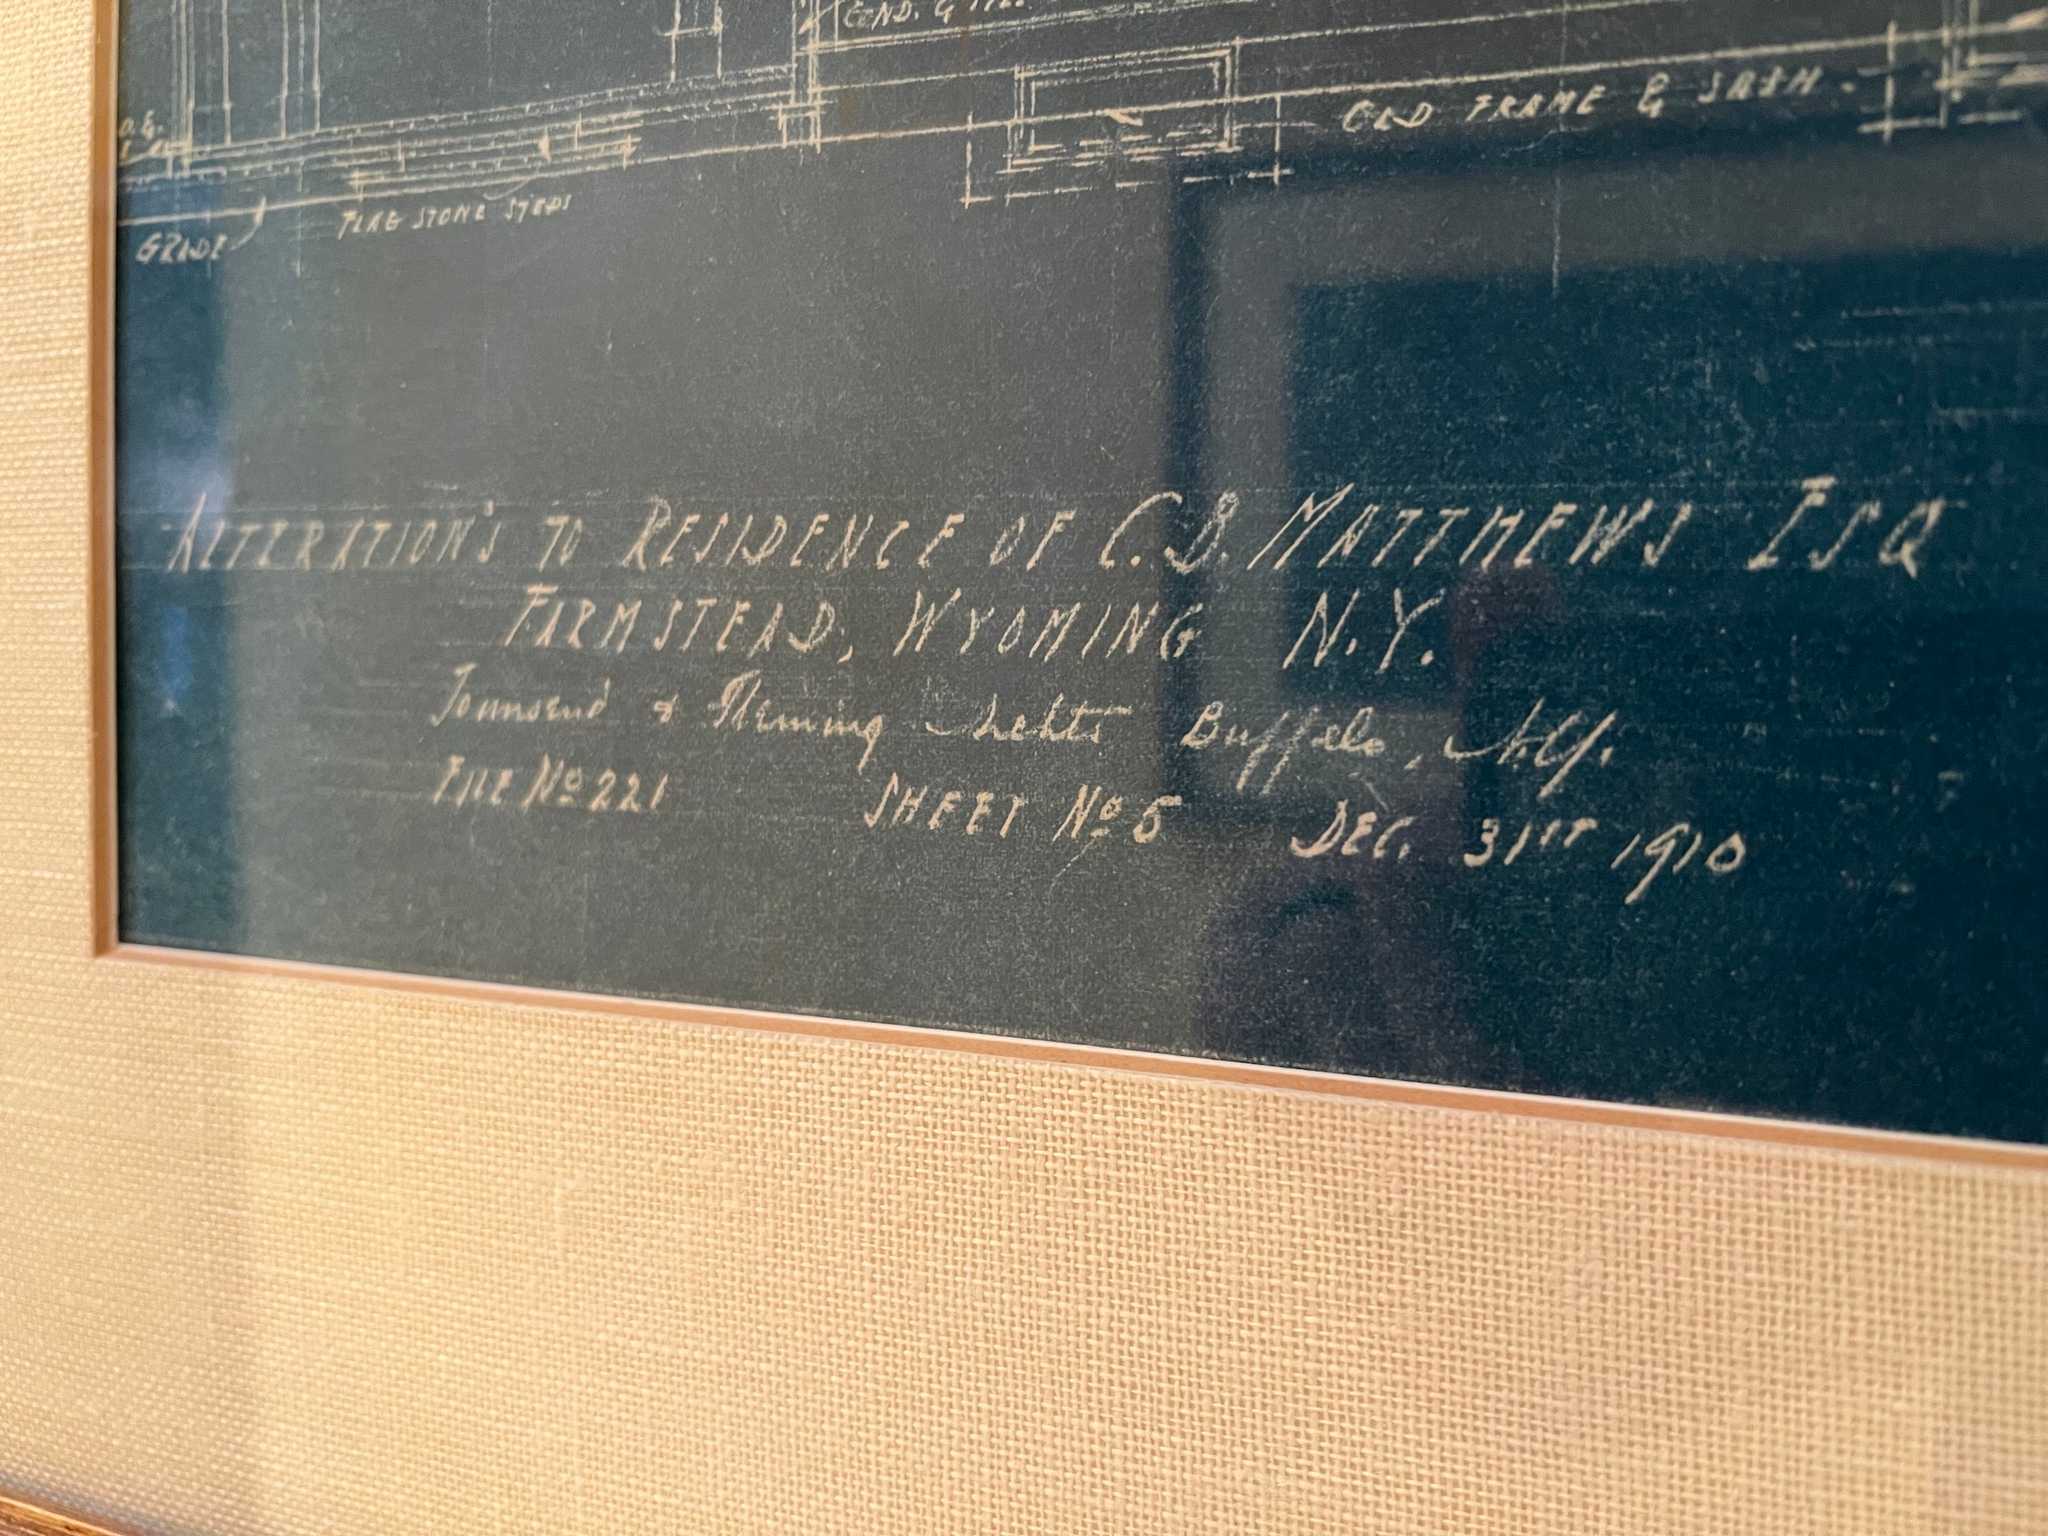 COND. &
OLD FRAME & SASH.
FLAG STONE STEPS
GRADE
ALTERATION'S TO RESIDENCE OF C.B. MATTHEWS ESQ
FARMSTEAD, WYOMING N.Y.
Townsend & Fleming Archts Buffalo, N.Y.
FILE No 221 SHEET No 5 DEC. 31ST 1910